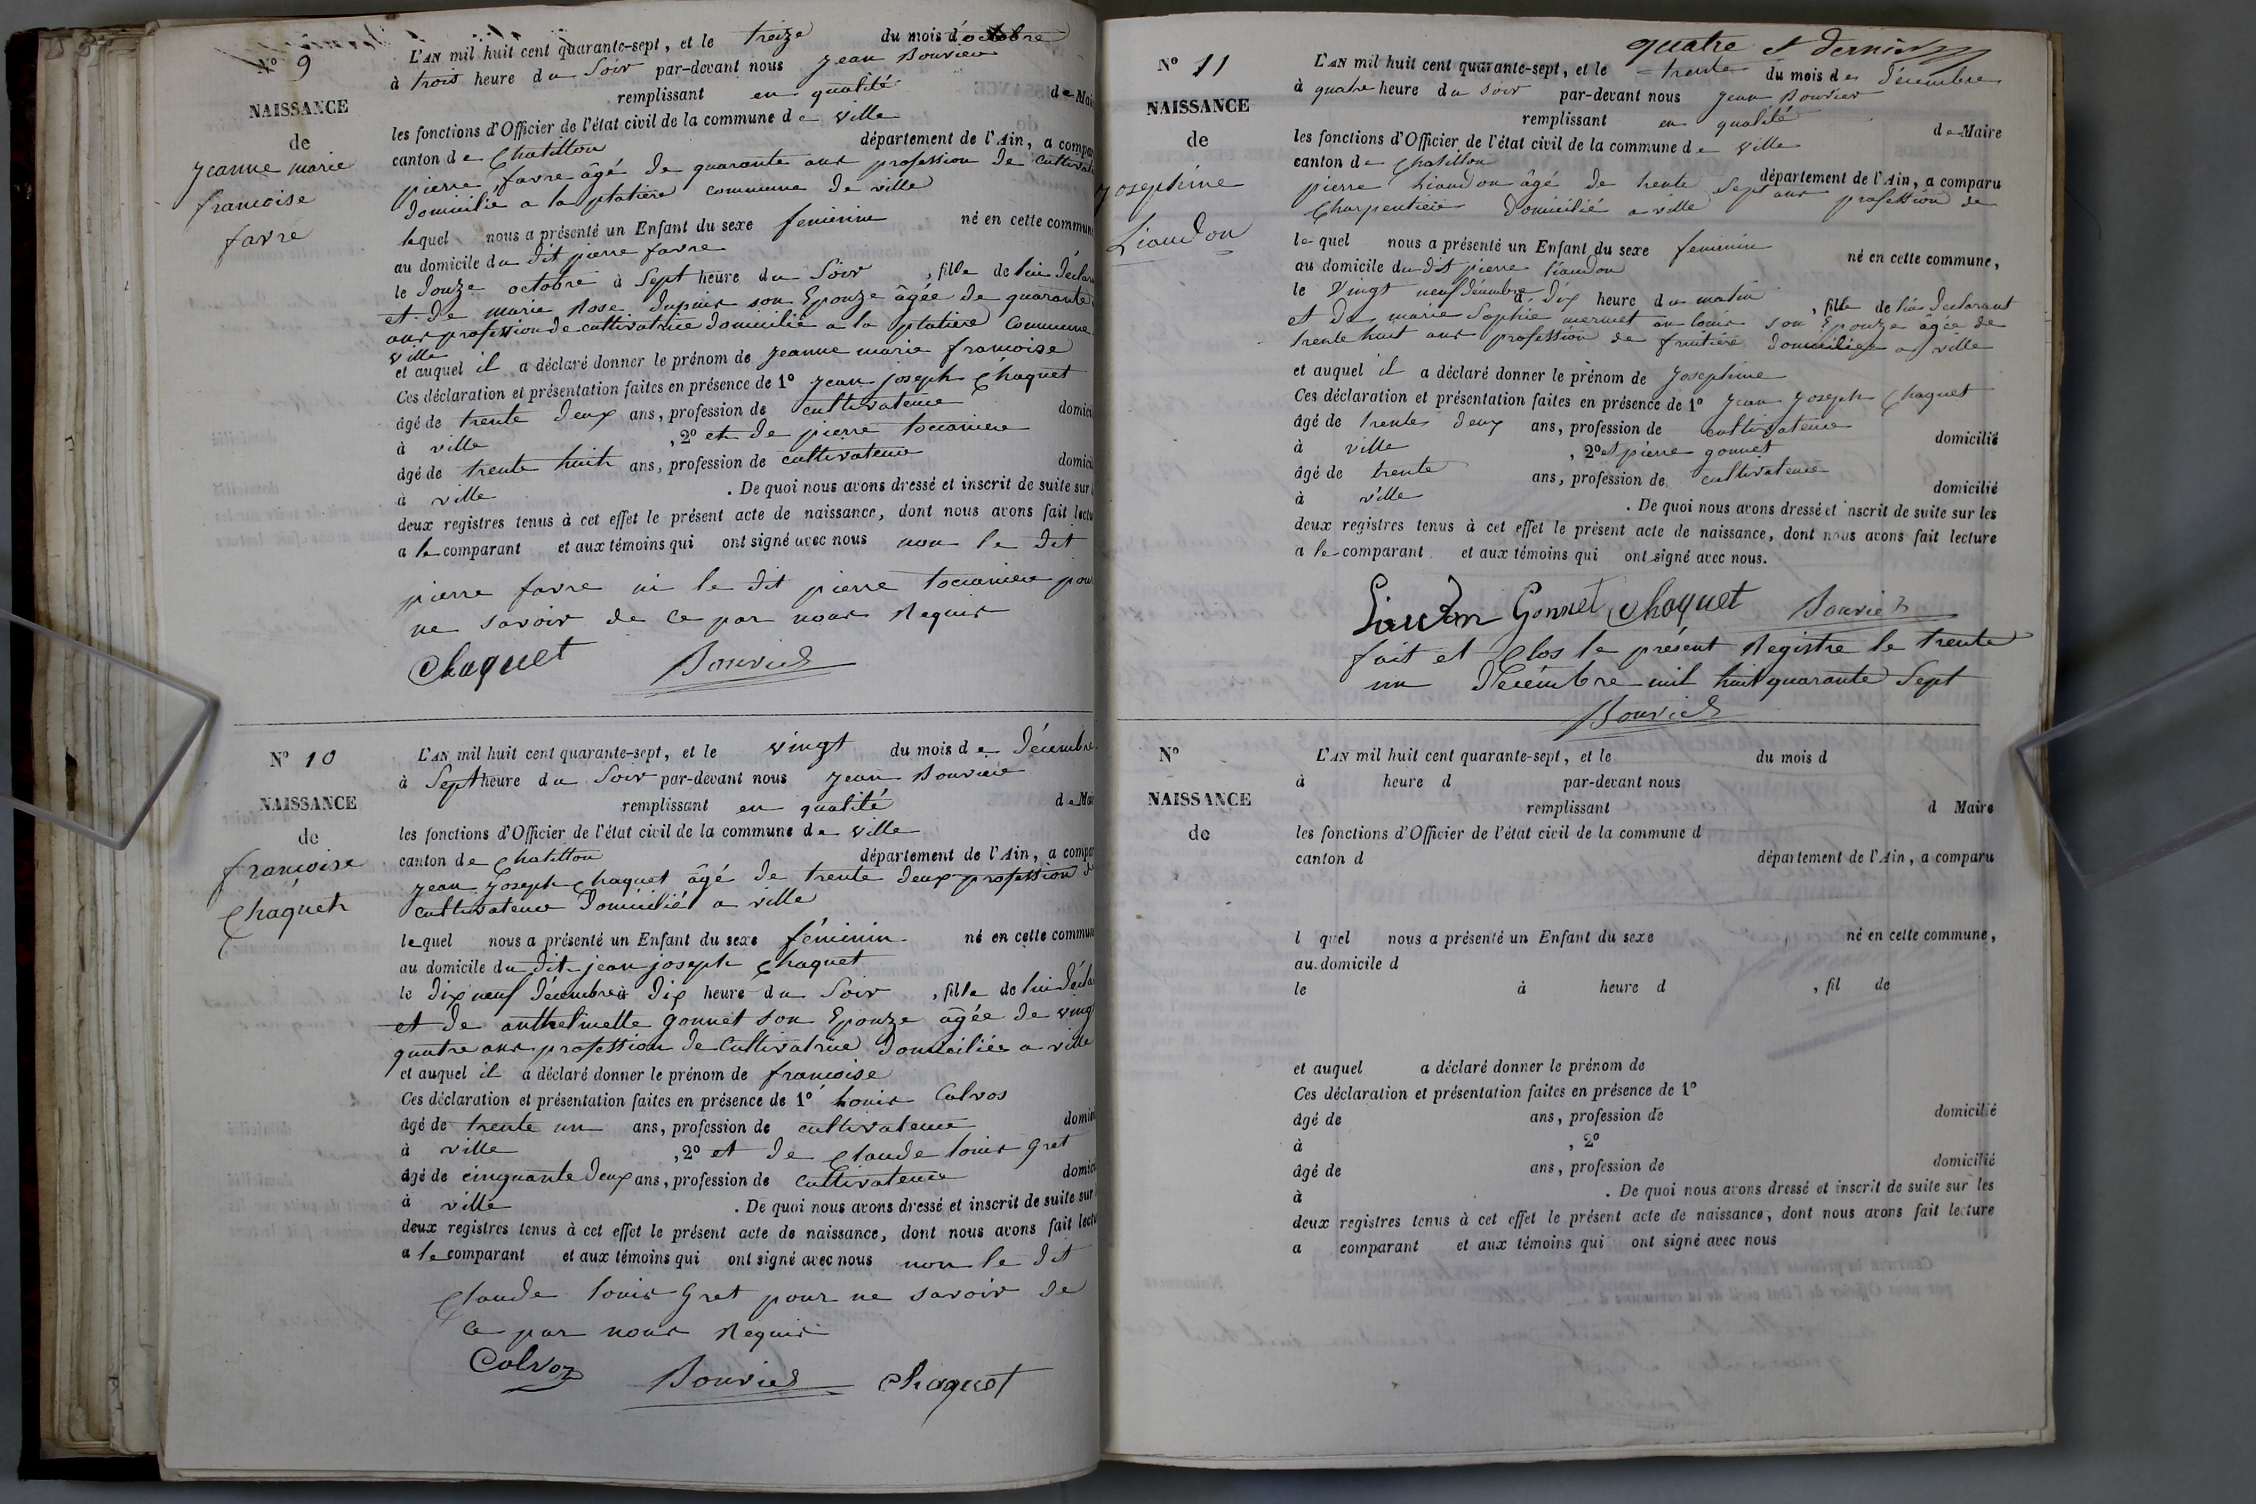 N° 9
NAISSANCE
de
jeanne marie
francoise
favre
L'AN mil huit cent quarante-sept, et le treize du mois d'octobre
à trois heure du Soir par-devant nous jean Bouvier
remplissant en qualité de Mai
les fonctions d'Officier de l'état civil de la commune de ville
canton de Chatillon département de l'Ain, a compar
pierre favre âgé de quarante ans profession de cultivate
domicilié a la platiere commune de ville
lequel nous a présenté un Enfant du sexe feminin né en cette commun
au domicile du dit pierre favre
le douze octobre à Sept heure du Soir, fille de lui déclara
et de marie Rose dupuis son Epouze âgée de quarante
ans profession de cultivatrice domicilié a la platiere commune
ville
et auquel il a déclaré donner le prénom de jeanne marie francoise
Ces déclaration et présentation faites en présence de 1° jean joseph Chaquet
âgé de trente deux ans, profession de cultivateur domici
à ville , 2° et de pierre
âgé de trente huit ans, profession de cultivateur domici
à ville . De quoi nous avons dressé et inscrit de suite sur
deux registres tenus à cet effet le présent acte de naissance, dont nous avons fait lectu
a le comparant et aux témoins qui ont signé avec nous non le dit
pierre favre ni le dit pierre pour
ne savoir de ce par nous Requis
Chaquet Bouvier
N° 10
NAISSANCE
de
francoise
Chaquet
L'AN mil huit cent quarante-sept, et le vingt du mois de décembre
à Sept heure du Soir par-devant nous jean Bouvier
remplissant en qualité de Mai
les fonctions d'Officier de l'état civil de la commune de ville
canton de Chatillon département de l'Ain, a compar
jean joseph Chaquet âgé de trente deux profession de
cultivateur domicilié a ville
lequel nous a présenté un Enfant du sexe féminin né en cette commun
au domicile du dit jean joseph Chaquet
le dix neuf décembre à dix heure du Soir, fille de lui décla
et de anthelmette gonnet son Epouze âgée de vingt
quatre ans profession de Cultivatrice domiciliée a ville
et auquel il a déclaré donner le prénom de francoise
Ces déclaration et présentation faites en présence de 1° Louis Calvos
âgé de trente un ans, profession de cultivateur domici
à ville , 2° et de Claude louis Gret
âgé de cinquante deux ans, profession de Cultivateur domici
à ville . De quoi nous avons dressé et inscrit de suite sur
deux registres tenus à cet effet le présent acte de naissance, dont nous avons fait lectu
a le comparant et aux témoins qui ont signé avec nous non le dit
Claude louis Gret pour ne savoir de
ce par nous Requis
Calvoz Bouvier Chaquet
quatre et dernier
N° 11
NAISSANCE
de
Josephine
Liaudon
L'AN mil huit cent quarante-sept, et le trente du mois de décembre
à quatre heure du soir par-devant nous jean Bouvier
remplissant en qualité de Maire
les fonctions d'Officier de l'état civil de la commune de ville
canton de Chatillon département de l'Ain, a comparu
pierre Liaudon âgé de trente Sept ans profession de
Charpentier domicilié a ville
lequel nous a présenté un Enfant du sexe feminin né en cette commune,
au domicile du dit pierre liaudon
le Vingt neuf décembre à dix heure du matin, fille de lui declarant
et de marie Sophie mermet louis son Epouze âgée de
trente huit ans profession de fruitiere domiciliée a ville
et auquel il a déclaré donner le prénom de Josephine
Ces déclaration et présentation faites en présence de 1° jean joseph Chaquet
âgé de trente deux ans, profession de cultivateur domicilié
à ville , 2° et pierre gonnet
âgé de trente ans, profession de cultivateur domicilié
à ville . De quoi nous avons dressé et inscrit de suite sur les
deux registres tenus à cet effet le présent acte de naissance, dont nous avons fait lecture
a le comparant et aux témoins qui ont signé avec nous.
Liaudon Gonnet Chaquet Bouvier
fait et Clos le présent Registre le trente
un Décémbre mil huit quarante Sept
Bouvier
N°
NAISSANCE
de
L'AN mil huit cent quarante-sept, et le du mois d
à heure d par-devant nous
remplissant d Maire
les fonctions d'Officier de l'état civil de la commune d
canton d département de l'Ain, a comparu
l quel nous a présenté un Enfant du sexe né en cette commune,
au domicile d
le à heure d , fil de
et auquel a déclaré donner le prénom de
Ces déclaration et présentation faites en présence de 1°
âgé de ans, profession de domicilié
à , 2°
âgé de ans, profession de domicilié
à . De quoi nous avons dressé et inscrit de suite sur les
deux registres tenus à cet effet le présent acte de naissance, dont nous avons fait lecture
a comparant et aux témoins qui ont signé avec nous